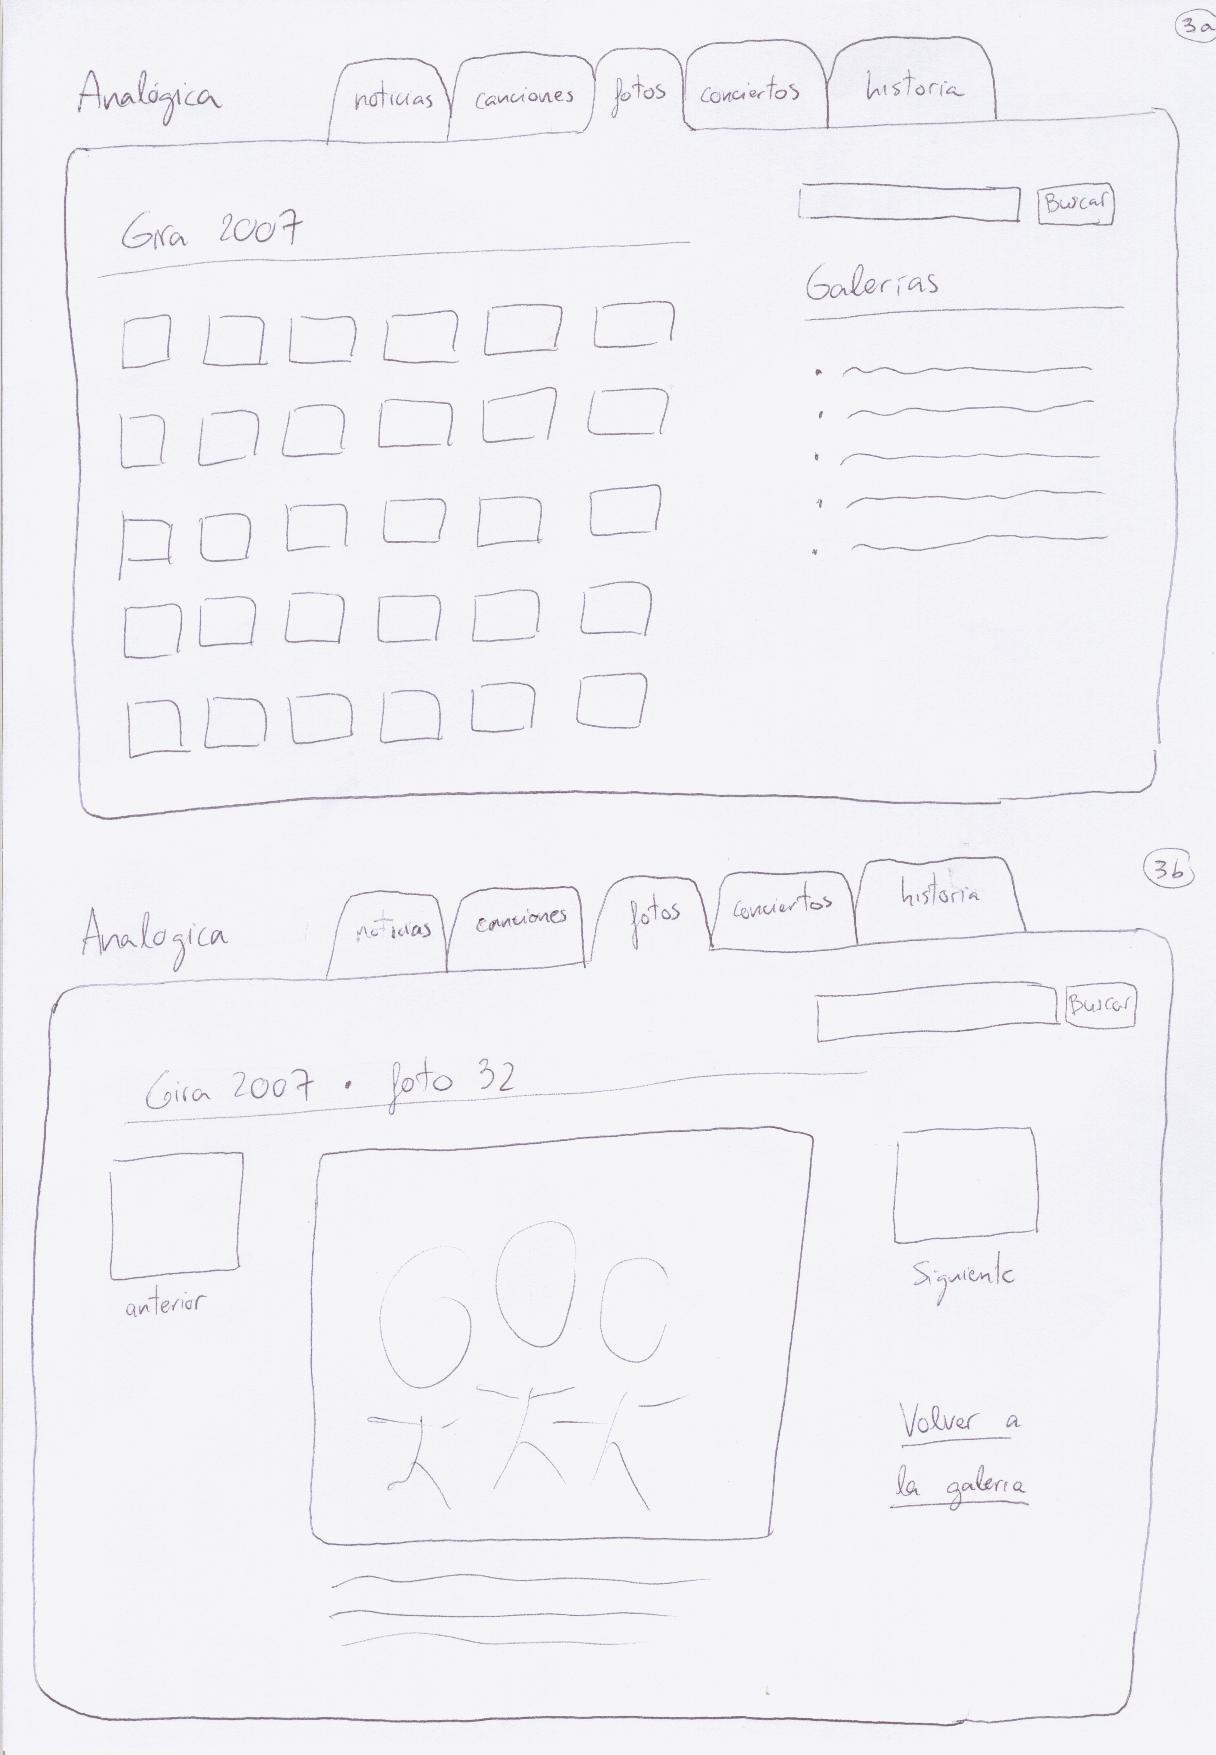 3a
Analógica
noticias canciones fotos conciertos historia
Buscar
Gira 2007
Galerías
3b
Analógica
noticias canciones fotos conciertos historia
Buscar
Gira 2007 · foto 32
anterior
Siguiente
Volver a
la galería